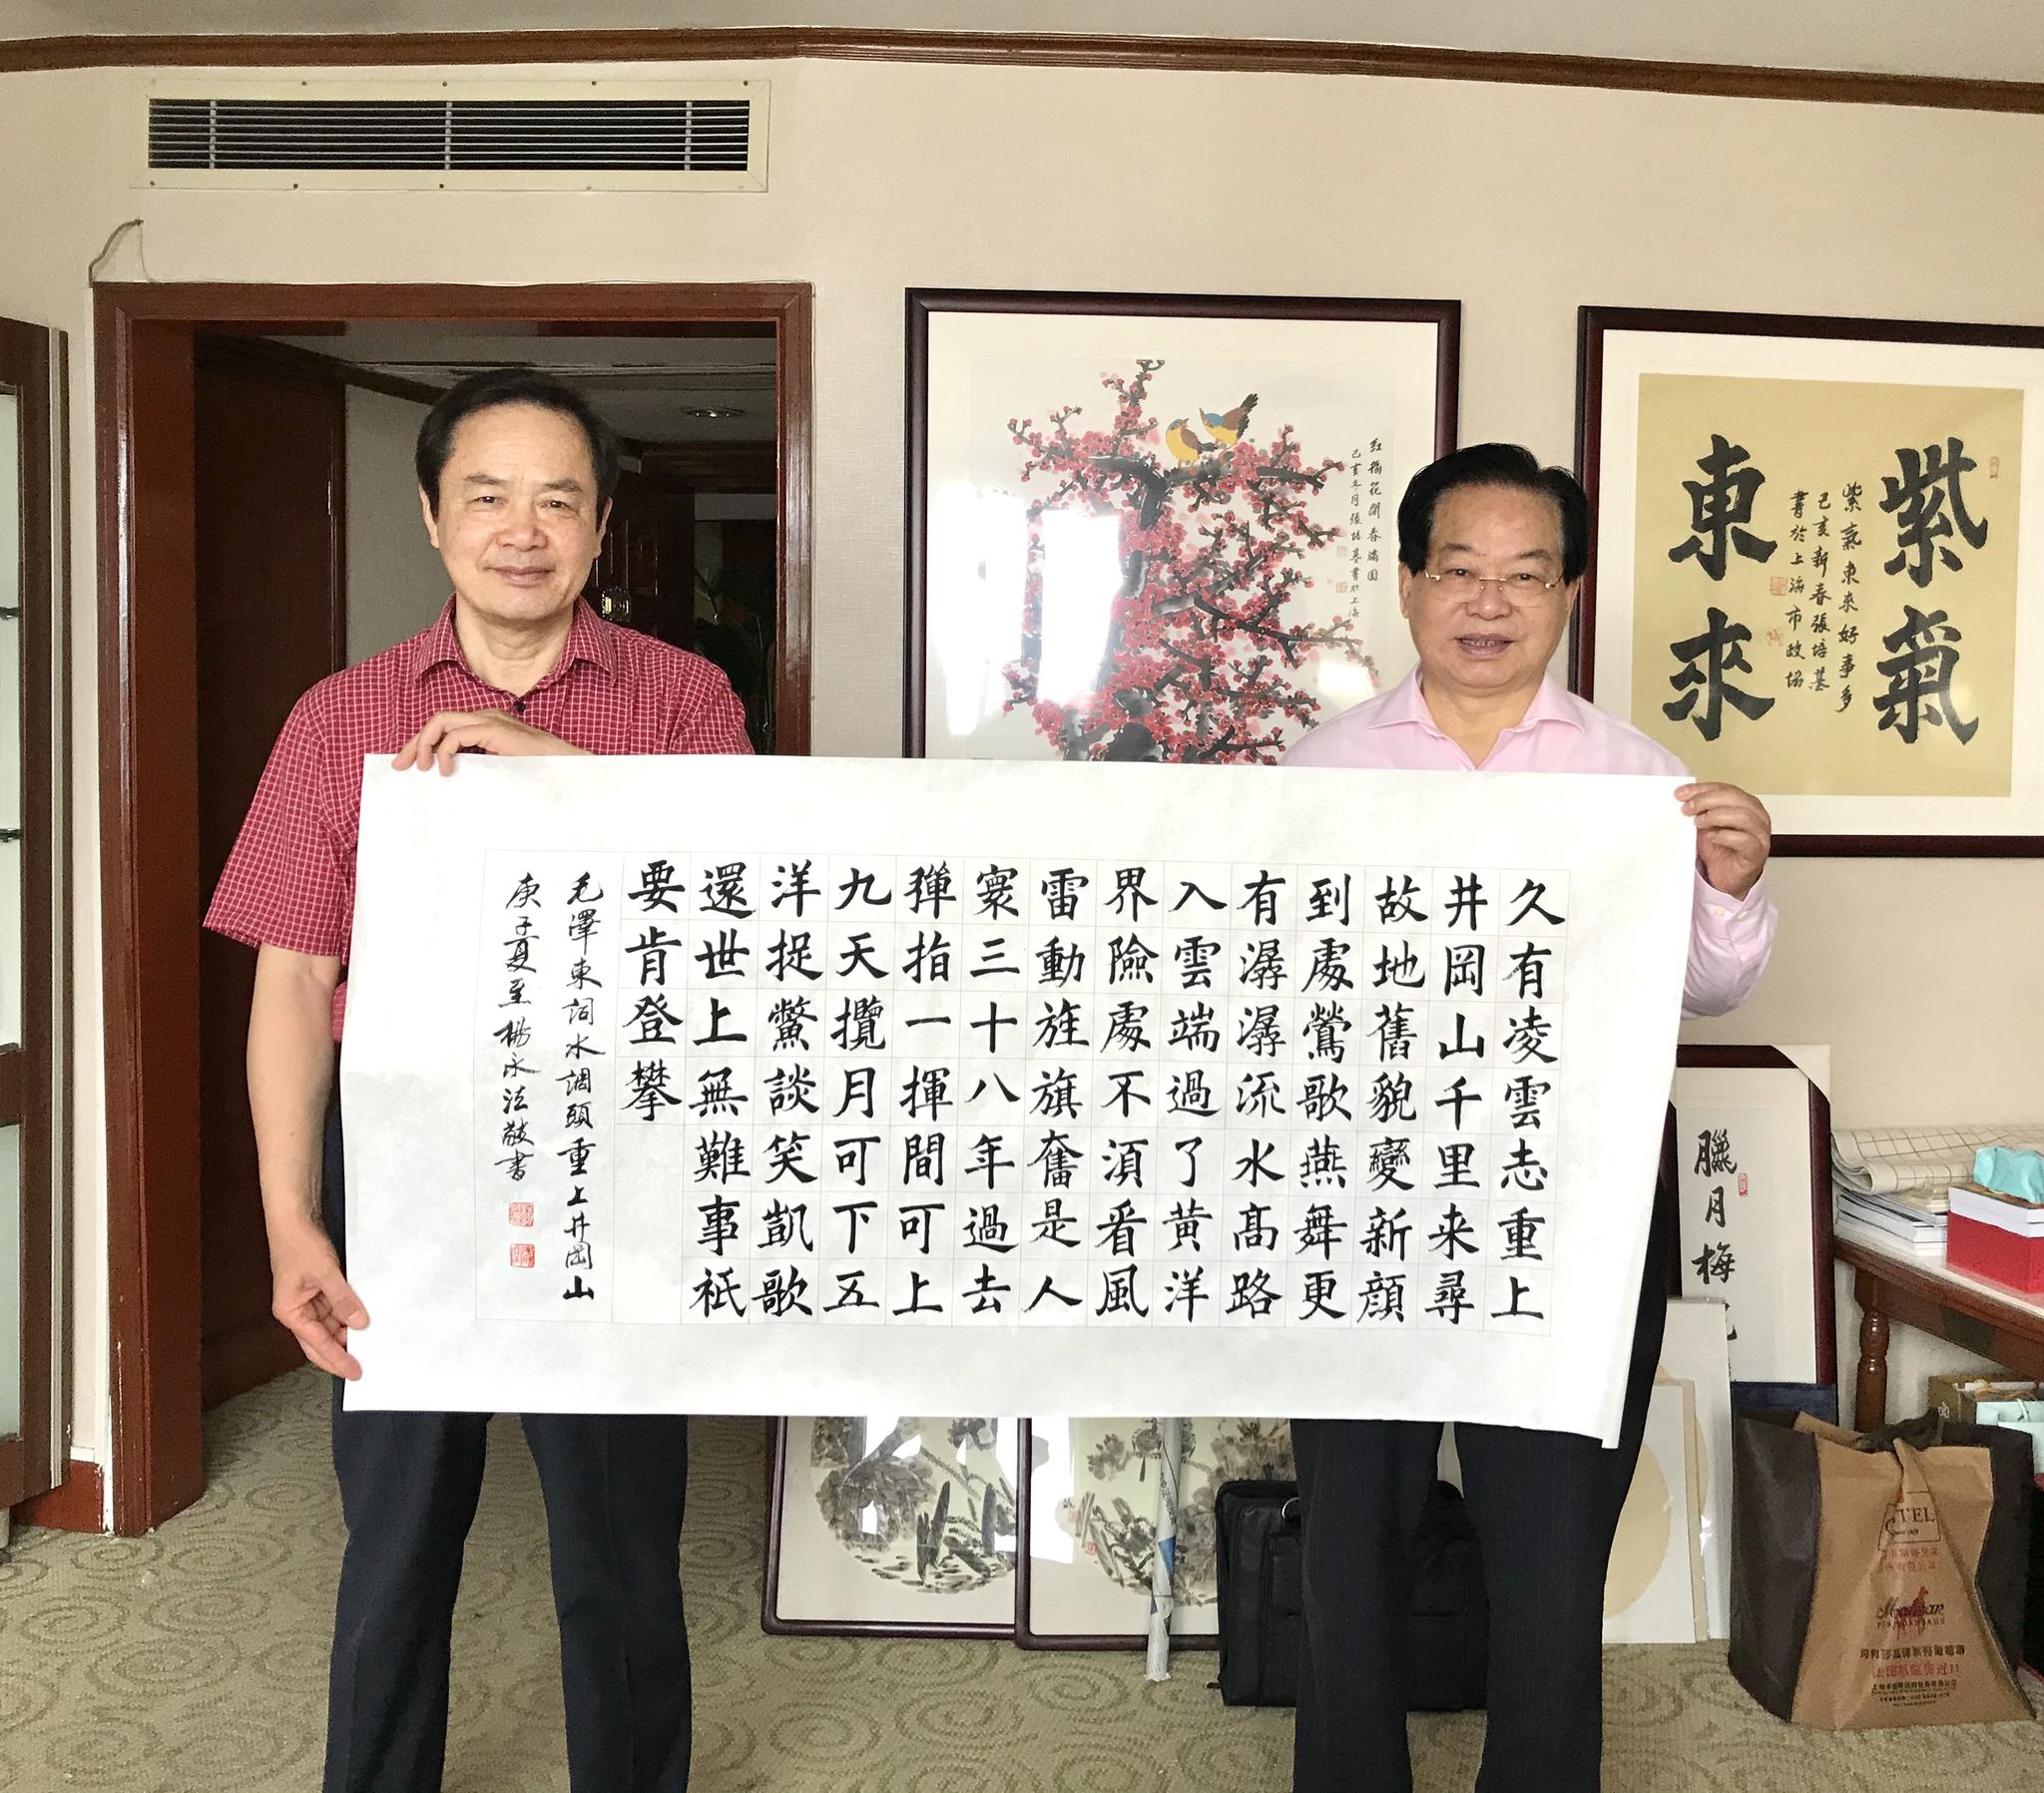 久有凌雲志重上
井岡山千里来尋
故地舊貌變新顔
到處鶯歌燕舞更
有潺潺流水髙路
入雲端過了黄洋
界險處不湏看風
雷動旌旗奮是人
寰三十八年過去
彈指一揮間可上
九天攬月可下五
洋捉鱉談笑凱歌
還世上無難事祇
要肯登攀
毛澤東詞水調頭重上井岡山
庚子夏至楊永法敬書
红梅花開春滿園
己亥年同張培基書於上海
紫氣
東來
紫氣東來好事多
己亥新春張培基
書於上海市政協
臘月梅